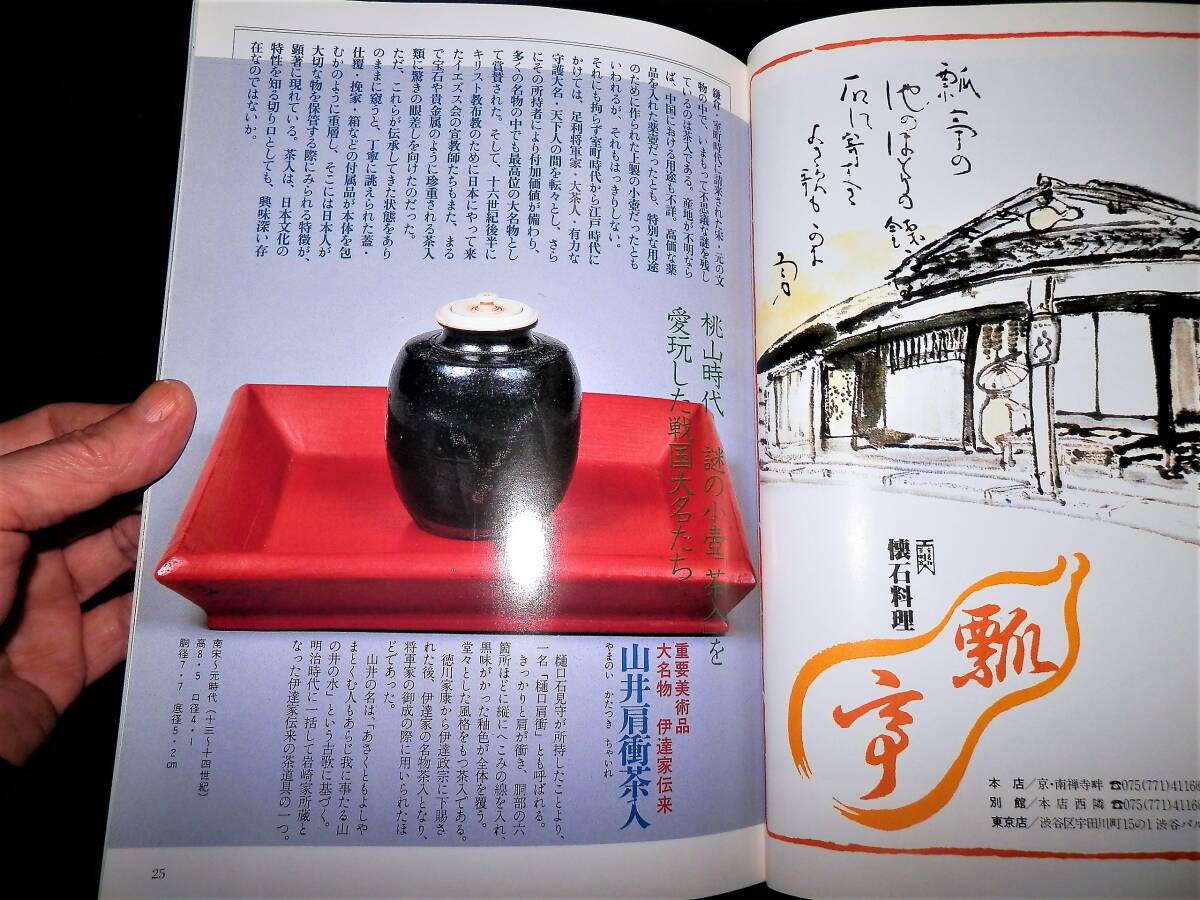 鎌倉・室町時代に請来された宋・元の文
物の中で、いまもって不思議な謎を残し
ているのは茶入である。産地が不明なら
ば、中国における用途も不詳。高価な薬
品を入れた薬壺だったとも、特別な用途
のために作られた上製の小壺だったとも
いわれるが、それもはっきりしない。
それにも拘らず室町時代から江戸時代に
かけては、足利将軍家・大茶人・有力な
守護大名・天下人の間を転々とし、さら
にその所持者により付加価値が備わり、
多くの名物の中でも最高位の大名物とし
て賞賛された。そして、十六世紀後半に
キリスト教布教のために日本にやって来
たイエズス会の宣教師たちもまた、まる
で宝石や貴金属のように珍重される茶入
類に驚きの眼差しを向けたのだった。
ただ、これらが伝承してきた状態をあり
のままに窺うと、丁寧に誂えられた蓋・
仕覆・挽家・箱などの付属品が本体を包
むかのように重層し、そこには日本人が
大切な物を保管する際にみられる特徴が、
顕著に現れている。茶入は、日本文化の
特性を知る切り口としても、興味深い存
在なのではないか。
桃山時代 謎の小壺 茶入を
愛玩した戦国大名たち
重要美術品
大名物 伊達家伝来
山井肩衝茶入
やまのい かたつき ちゃいれ
樋口石見守が所持したことより、
一名「樋口肩衝」とも呼ばれる。
きっかりと肩が衝き、胴部の六
箇所ほどに縦にへこみの線を入れ、
黒味がかった釉色が全体を覆う。
堂々とした風格をもつ茶入である。
徳川家康から伊達政宗に下賜さ
れた後、伊達家の名物茶入となり、
将軍家の御成の際に用いられたほ
どであった。
山井の名は、「あさくともよしや
またくむ人もあらじ我に事たる山
の井の水」という古歌に基づく。
明治時代に一括して岩崎家所蔵と
なった伊達家伝来の茶道具の一つ。
南宋〜元時代(十三〜十四世紀)
高8・5 口径4・1
胴径7・7 底径5・2㎝
25
瓢亭の
池のほとりの
懐石料理
瓢亭
本店/京・南禅寺畔 ☎075(771)4116
別館/本店西隣 ☎075(771)4116
東京店/渋谷区宇田川町15の1 渋谷パル